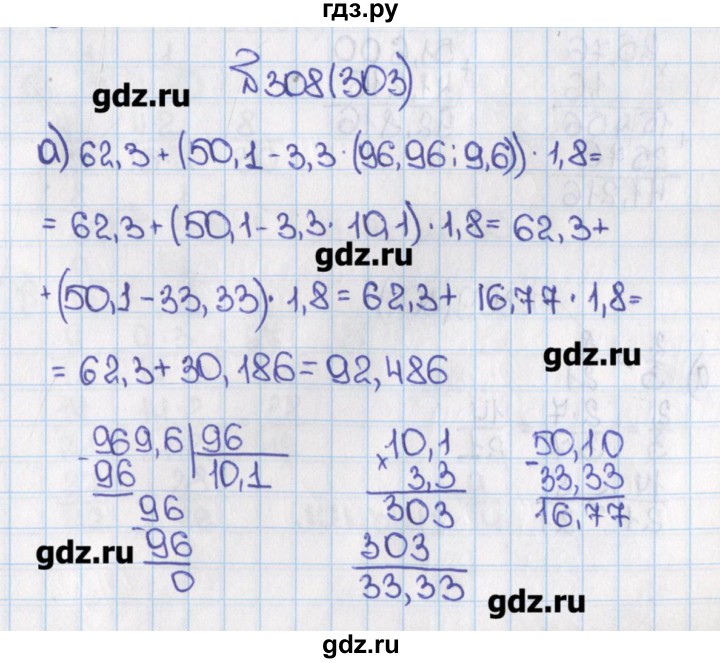 гдз.ру
№308(303)
gdz.ru
а) 62,3 + (50,1 - 3,3 · (96,96 : 9,6)) · 1,8 =
= 62,3 + (50,1 - 3,3 · 10,1) · 1,8 = 62,3 +
gdz.ru
+ (50,1 - 33,33) · 1,8 = 62,3 + 16,77 · 1,8 =
gdz.ru
= 62,3 + 30,186 = 92,486
969,6 | 96
- 96 | 10,1
96
- 96
0
gdz.ru
10,1
× 3,3
303
303
33,33
50,10
- 33,33
16,77
gdz.ru
gdz.ru